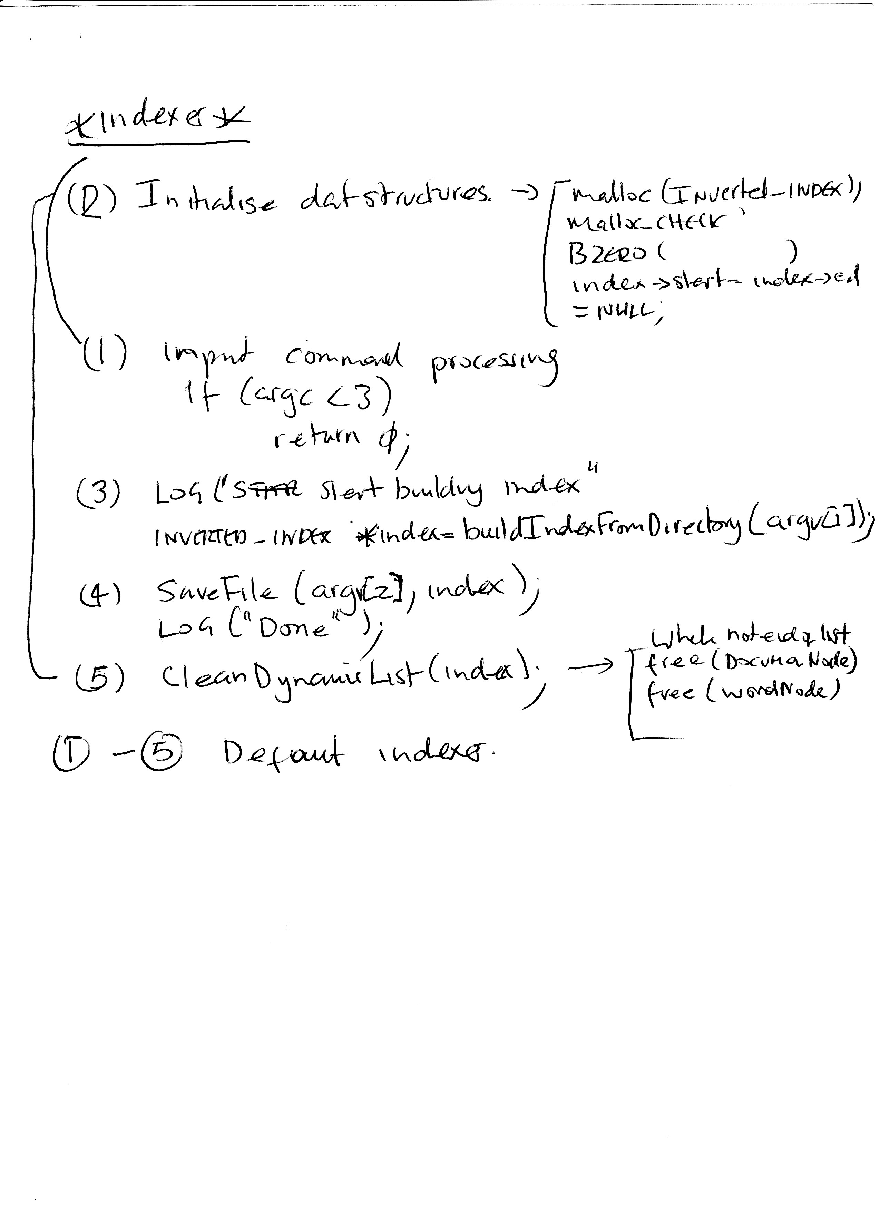 *Indexer*
(2) Initialise datstructures. → malloc (INverted_INDEX);
malloc_CHECK
BZERO ( )
index→start = index→end
= NULL;
(1) Input command processing
If (argc < 3)
return φ;
(3) LOG ("start building index"
INVERTED_INDEX *index = buildIndexFromDirectory (argv[1]);
(4) SaveFile (argv[2], index);
LOG ("Done");
While not end of list
(5) CleanDynamicList (index); → free (DocumentNode)
free (wordNode)
① - ⑤ Defaut indexer.